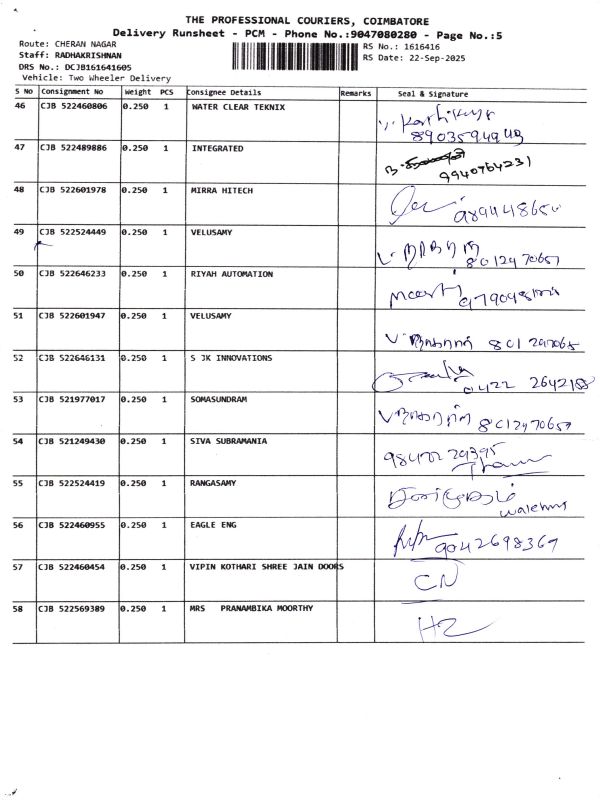 THE PROFESSIONAL COURIERS, COIMBATORE
Delivery Runsheet - PCM - Phone No.:9047080280 - Page No.:5
Route: CHERAN NAGAR
RS No.: 1616416
Staff: RADHAKRISHNAN
RS Date: 22-Sep-2025
DRS No.: DCJB161641605
Vehicle: Two Wheeler Delivery
S No Consignment No Weight PCS Consignee Details Remarks Seal & Signature
46 CJB 522460806 0.250 1 WATER CLEAR TEKNIX
8903594949
47 CJB 522489886 0.250 1 INTEGRATED
9940764231
48 CJB 522601978 0.250 1 MIRRA HITECH
9894448650
49 CJB 522524449 0.250 1 VELUSAMY
8012470657
50 CJB 522646233 0.250 1 RIYAH AUTOMATION
51 CJB 522601947 0.250 1 VELUSAMY
52 CJB 522646131 0.250 1 S JK INNOVATIONS
0422 2642188
53 CJB 521977017 0.250 1 SOMASUNDRAM
8012470657
54 CJB 521249430 0.250 1 SIVA SUBRAMANIA
55 CJB 522524419 0.250 1 RANGASAMY
56 CJB 522460955 0.250 1 EAGLE ENG
9042698367
57 CJB 522460454 0.250 1 VIPIN KOTHARI SHREE JAIN DOORS
CN
58 CJB 522569389 0.250 1 MRS PRANAMBIKA MOORTHY